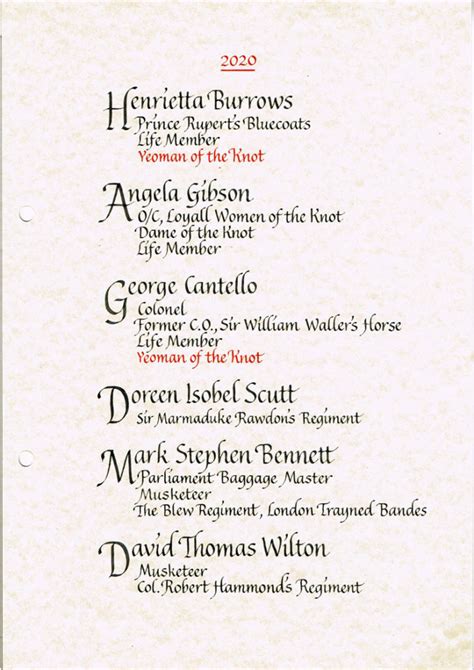 2020
Henrietta Burrows
Prince Rupert's Bluecoats
Life Member
Yeoman of the Knot
Angela Gibson
O/C, Loyall Women of the Knot
Dame of the Knot
Life Member
George Cantello
Colonel
Former C.O., Sir William Waller's Horse
Life Member
Yeoman of the Knot
Doreen Isobel Scutt
Sir Marmaduke Rawdon's Regiment
Mark Stephen Bennett
Parliament Baggage Master
Musketeer
The Blew Regiment, London Trayned Bandes
David Thomas Wilton
Musketeer
Col. Robert Hammond's Regiment